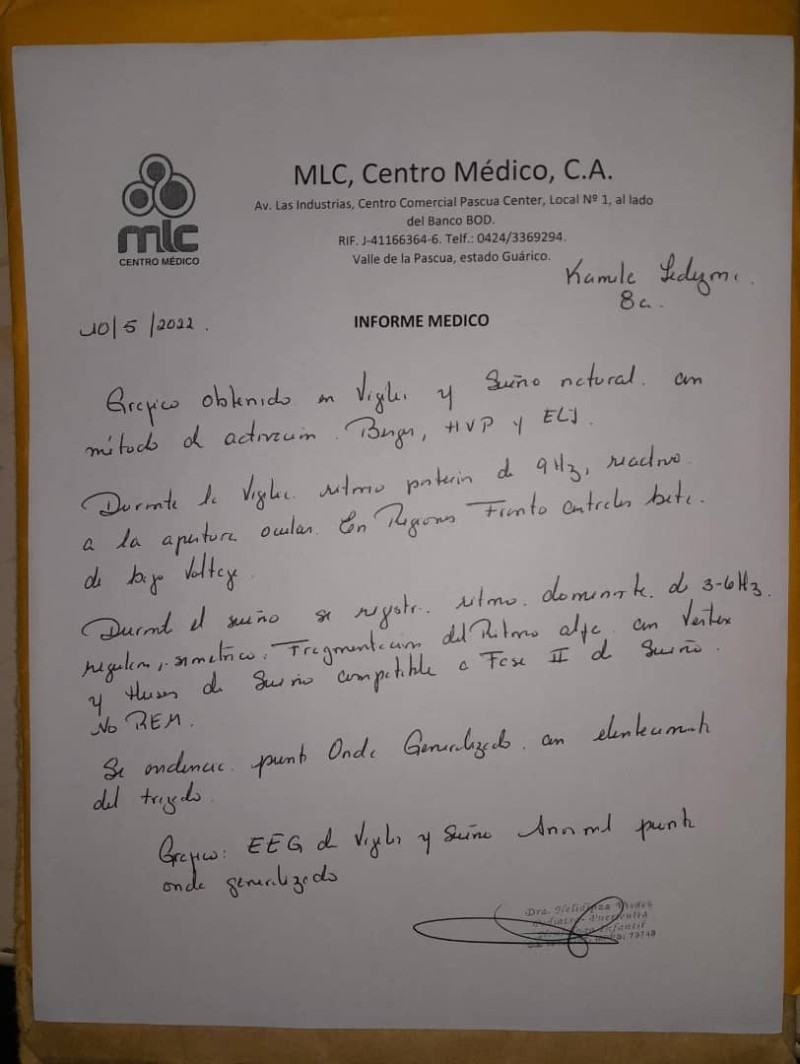 mlc
CENTRO MÉDICO
MLC, Centro Médico, C.A.
Av. Las Industrias, Centro Comercial Pascua Center, Local Nº 1, al lado
del Banco BOD.
RIF. J-41166364-6. Telf.: 0424/3369294.
Valle de la Pascua, estado Guárico.
8a.
10/5/2022.
INFORME MEDICO
Grafico obtenido en Vigilia y Sueño natural. con
método de activacion. Berger, HVP y ELI.
Durante la Vigilia ritmo posterior de 9Hz, reactivo
a la apertura ocular. En Regiones Fronto centrales beta.
de bajo Voltaje
Durante el sueño se registra ritmo dominante de 3-6Hz.
regular, simetrico. Fragmentacion del Ritmo alfa con Vertex
y Husos de Sueño compatible a Fase II de Sueño.
No REM.
Se evidencia punta Onda Generalizado con elentecimiento
del trazado.
Grafico: EEG de Vigilia y Sueño Anormal punta
onda generalizado
Dra.
Infantil